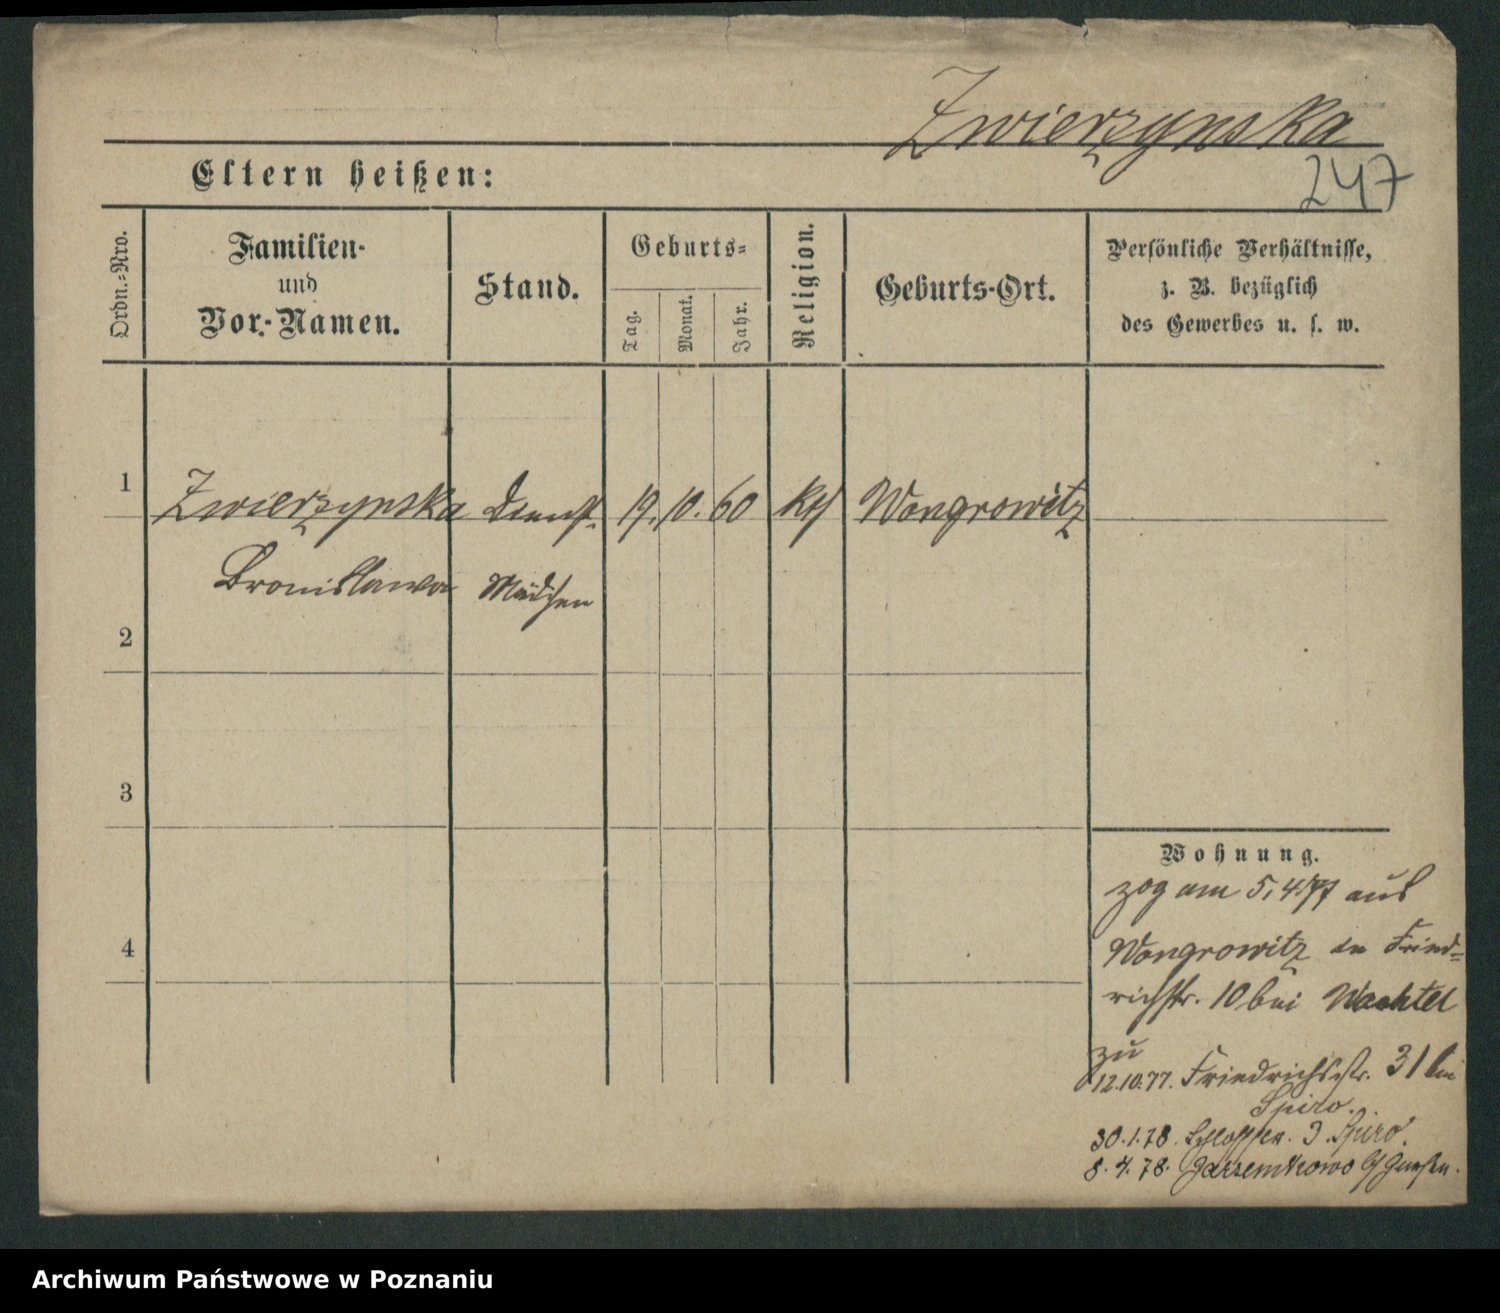 Zwierzynska
247
Eltern heißen:
Ordn.-Nro.
Familien-
und
Vor.-Namen.
Stand.
Geburts-
Tag.
Monat.
Jahr.
Religion.
Geburts-Ort.
Persönliche Verhältnisse,
z. B. bezüglich
des Gewerbes u. s. w.
1
Zwierzynska Dienst- 19. 10. 60 kth Wongrowitz
Bronislawa Mädchen
2
3
4
Wohnung.
zog am 5.4.77 aus
Wongrowitz in Fried=
richstr. 10 bei Wachtel
zu
12.10.77. Friedrichsstr. 31 bei
Spiro.
30.1.78. Schlosserstr. 3. Spiro.
8.4.78. b/ Gnesen.
Archiwum Państwowe w Poznaniu